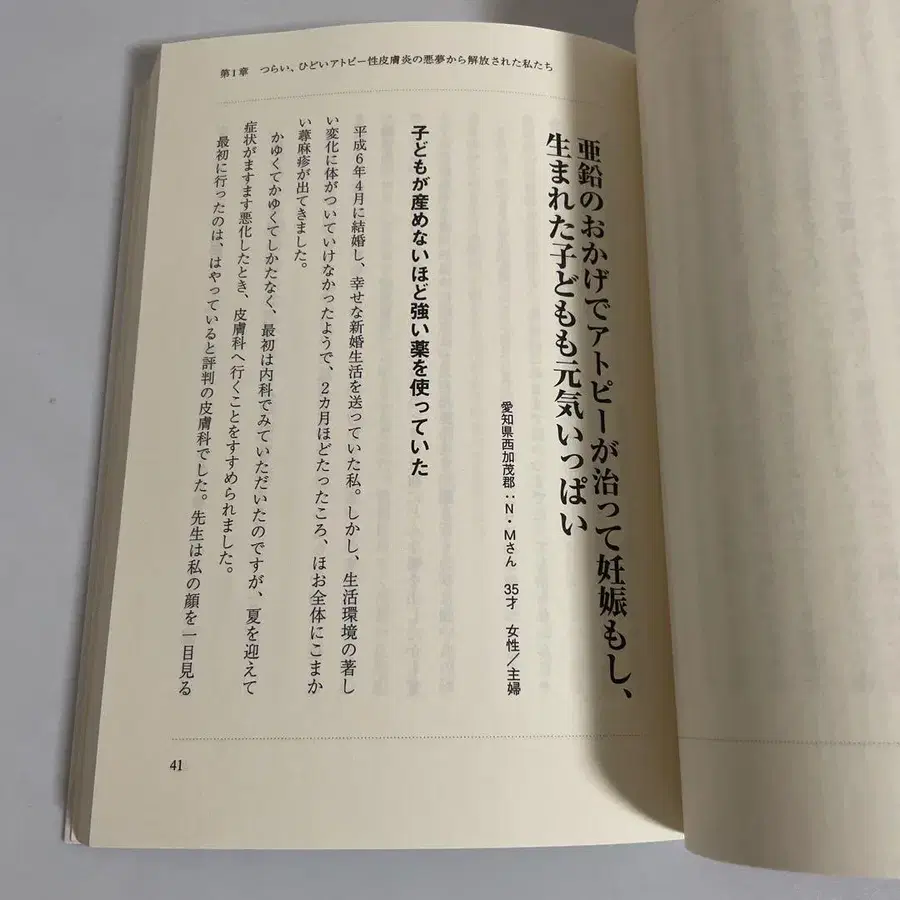 第1章　つらい、ひどいアトピー性皮膚炎の悪夢から解放された私たち
亜鉛のおかげでアトピーが治って妊娠もし、
生まれた子どもも元気いっぱい
愛知県西加茂郡：N・Mさん　35才　女性／主婦
子どもが産めないほど強い薬を使っていた
平成6年4月に結婚し、幸せな新婚生活を送っていた私。しかし、生活環境の著し
い変化に体がついていけなかったようで、2カ月ほどたったころ、ほお全体にこまか
い蕁麻疹が出てきました。
かゆくてかゆくてしかたなく、最初は内科でみていただいたのですが、夏を迎えて
症状がますます悪化したとき、皮膚科へ行くことをすすめられました。
最初に行ったのは、はやっていると評判の皮膚科でした。先生は私の顔を一目見る
41